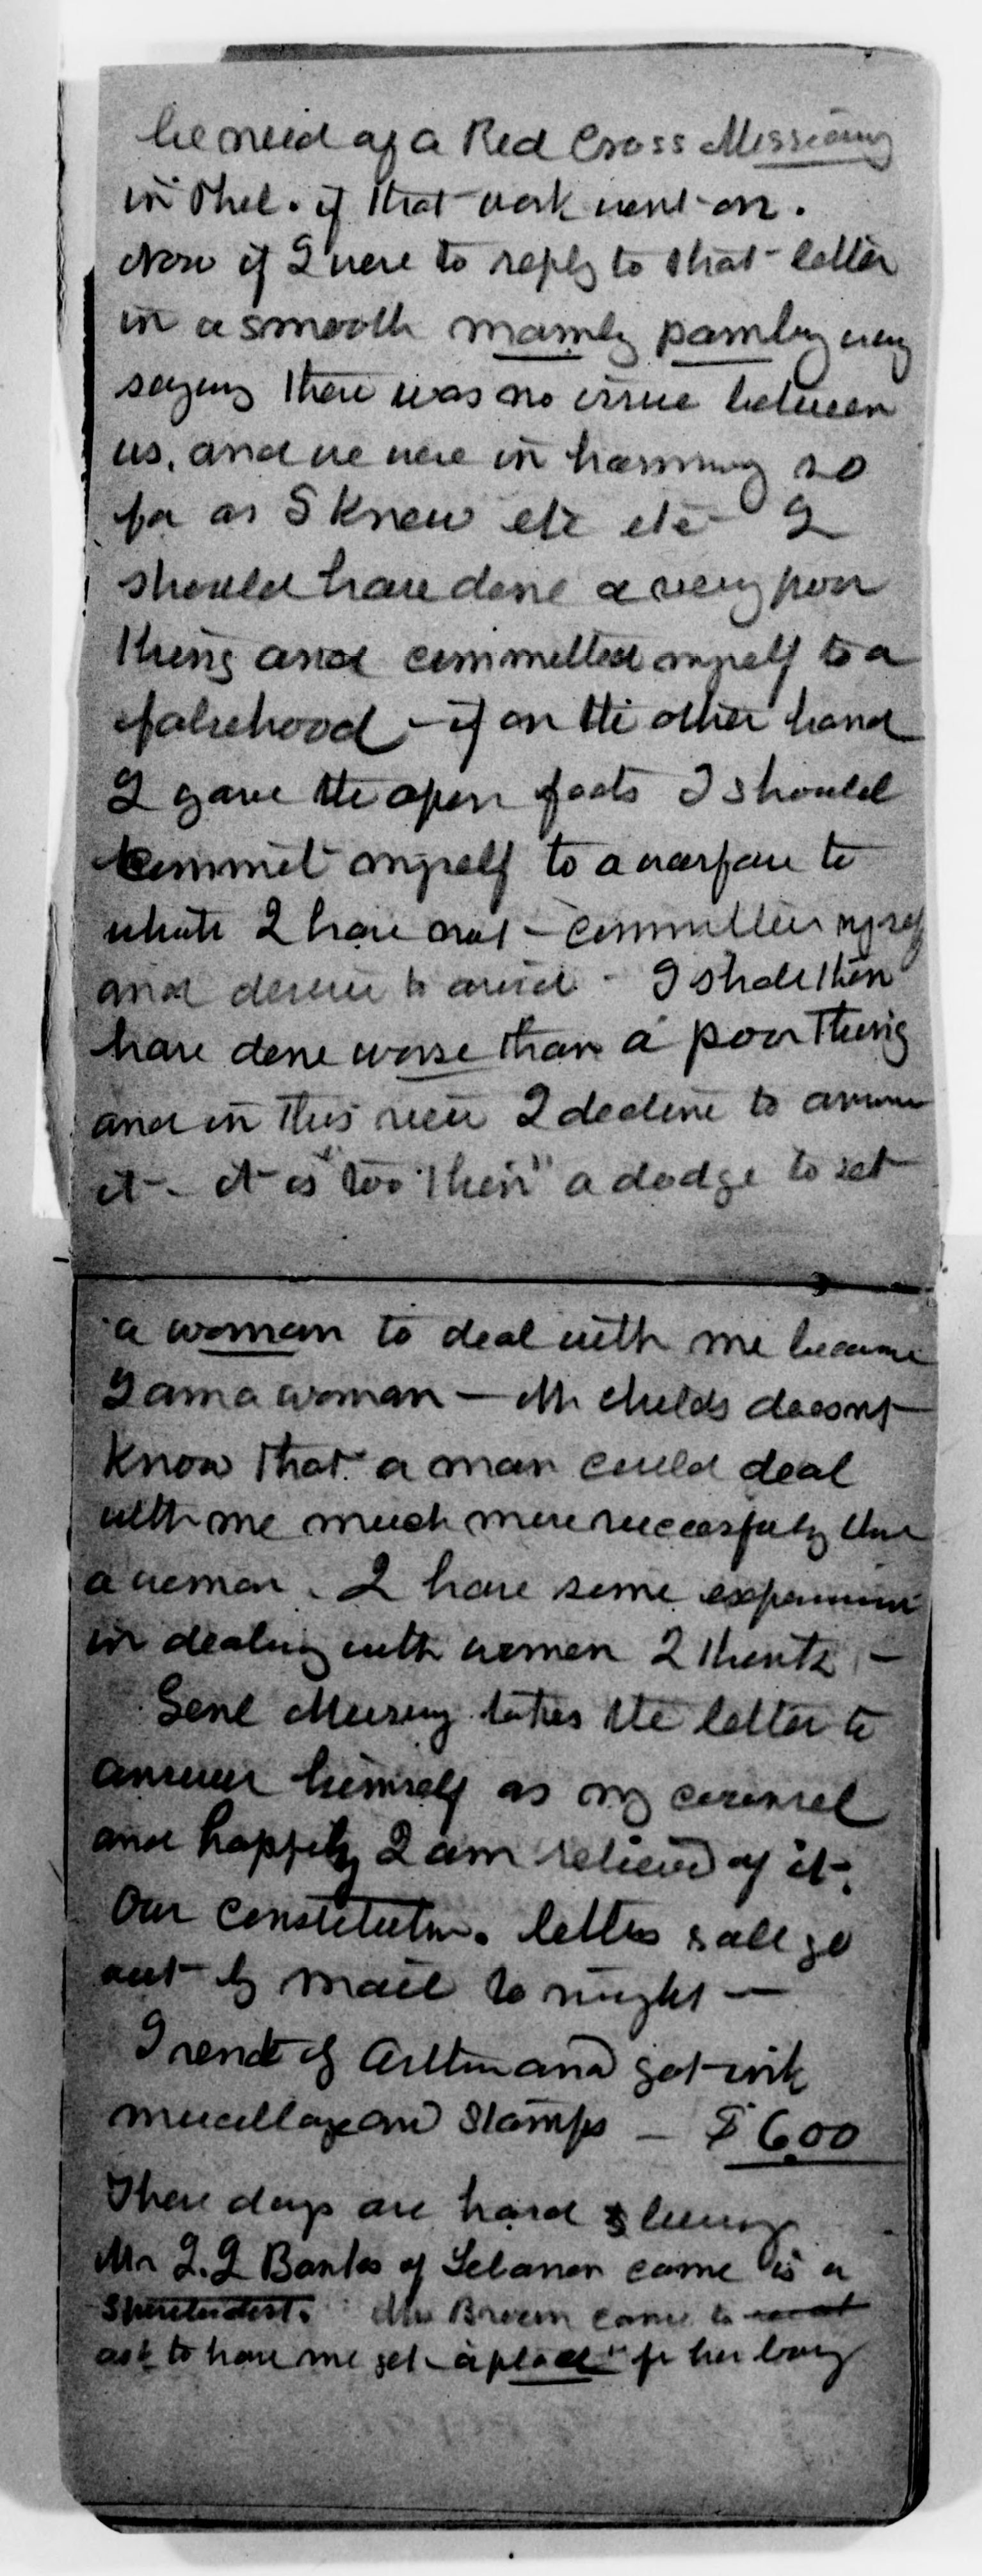 be need of a Red Cross Missionary
in Phil. if that work went on.
Now if I were to reply to that letter
in a smooth mamby pamby way
saying there was no issue between
us, and we were in harmony so
far as I knew etc etc I
should have done a very poor
thing and committed myself to a
falsehood - if on the other hand
I gave the open facts I should
commit myself to a warfare to
which I have not - committed myself
and desire to avoid - I shall then
have done worse than a poor thing
and in this view I decline to answer
it - it is "too thin" a dodge to set
a woman to deal with me because
I am a woman — Mr Childs doesnt
know that a man could deal
with me much more successfully than
a woman. I have some experience
in dealing with women I think -
Genl Mussey takes the letter to
answer himself as my counsel
and happily I am relieved of it.
Our Constitution. letters & all go
out by mail to night —
I send by and got ink
mucellage and Stamps - $6.00
These days are hard &
Mr I. I. Banks of Lebanon came is a
Spiritualist. Mrs Brown came to
ask to have me get "a place" for her boy